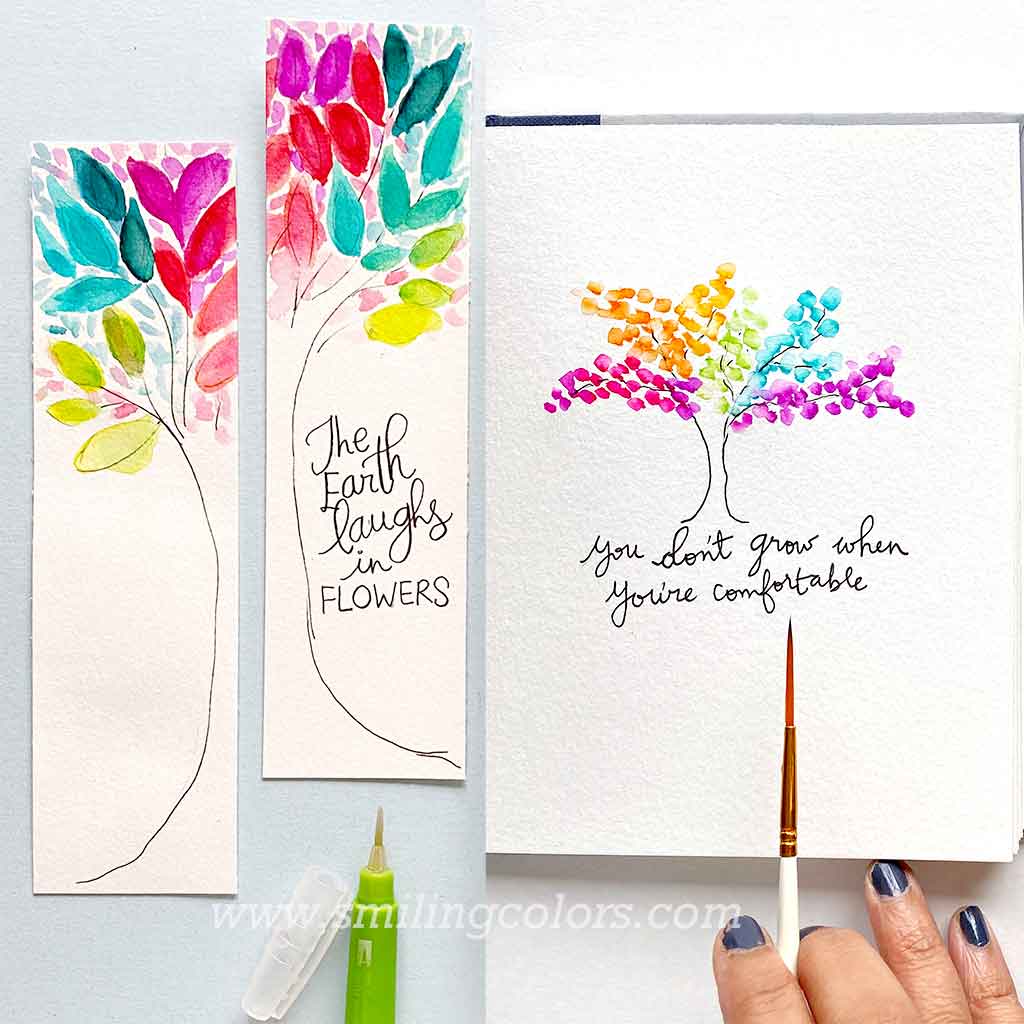 The
Earth
laughs
in
FLOWERS
you don't grow when
you're comfortable
www.smilingcolors.com